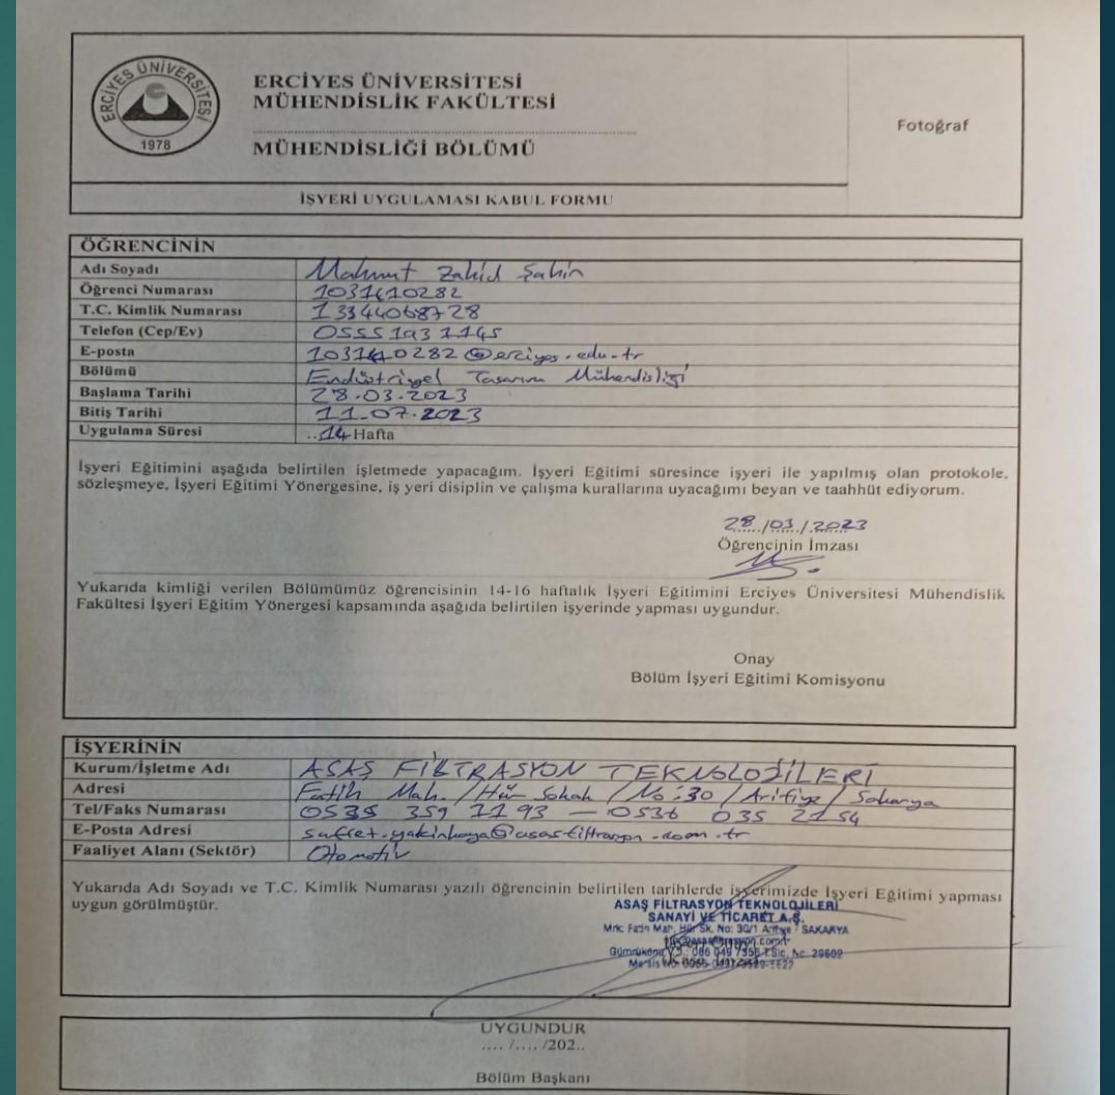 ERCİYES ÜNİVERSİTESİ
1978
ERCİYES ÜNİVERSİTESİ
MÜHENDİSLİK FAKÜLTESİ
MÜHENDİSLİĞİ BÖLÜMÜ
Fotoğraf
İŞYERİ UYGULAMASI KABUL FORMU
ÖĞRENCİNİN
Adı Soyadı Mahmut Zahid Şahin
Öğrenci Numarası 1031410282
T.C. Kimlik Numarası 13344068728
Telefon (Cep/Ev) 0555 193 1145
E-posta 1031410282@erciyes.edu.tr
Bölümü Endüstriyel Tasarım Mühendisliği
Başlama Tarihi 28.03.2023
Bitiş Tarihi 11.07.2023
Uygulama Süresi ..14 Hafta
İşyeri Eğitimini aşağıda belirtilen işletmede yapacağım. İşyeri Eğitimi süresince işyeri ile yapılmış olan protokole,
sözleşmeye, İşyeri Eğitimi Yönergesine, iş yeri disiplin ve çalışma kurallarına uyacağımı beyan ve taahhüt ediyorum.
28/03/2023
Öğrencinin İmzası
Yukarıda kimliği verilen Bölümümüz öğrencisinin 14-16 haftalık İşyeri Eğitimini Erciyes Üniversitesi Mühendislik
Fakültesi İşyeri Eğitim Yönergesi kapsamında aşağıda belirtilen işyerinde yapması uygundur.
Onay
Bölüm İşyeri Eğitimi Komisyonu
İŞYERİNİN
Kurum/İşletme Adı ASAŞ FİLTRASYON TEKNOLOJİLERİ
Adresi Fatih Mah. / Hür Sokak / No:30 / Arifiye / Sakarya
Tel/Faks Numarası 0535 359 1193 - 0536 035 2154
E-Posta Adresi saffet.yakinkaya@asasfiltrasyon.com.tr
Faaliyet Alanı (Sektör) Otomotiv
Yukarıda Adı Soyadı ve T.C. Kimlik Numarası yazılı öğrencinin belirtilen tarihlerde işyerimizde İşyeri Eğitimi yapması
uygun görülmüştür.
ASAŞ FİLTRASYON TEKNOLOJİLERİ
SANAYİ VE TİCARET A.Ş.
Mrk: Fatih Mah. Hür Sk. No: 30/1 Arifiye / SAKARYA
UYGUNDUR
.... /.... /202..
Bölüm Başkanı